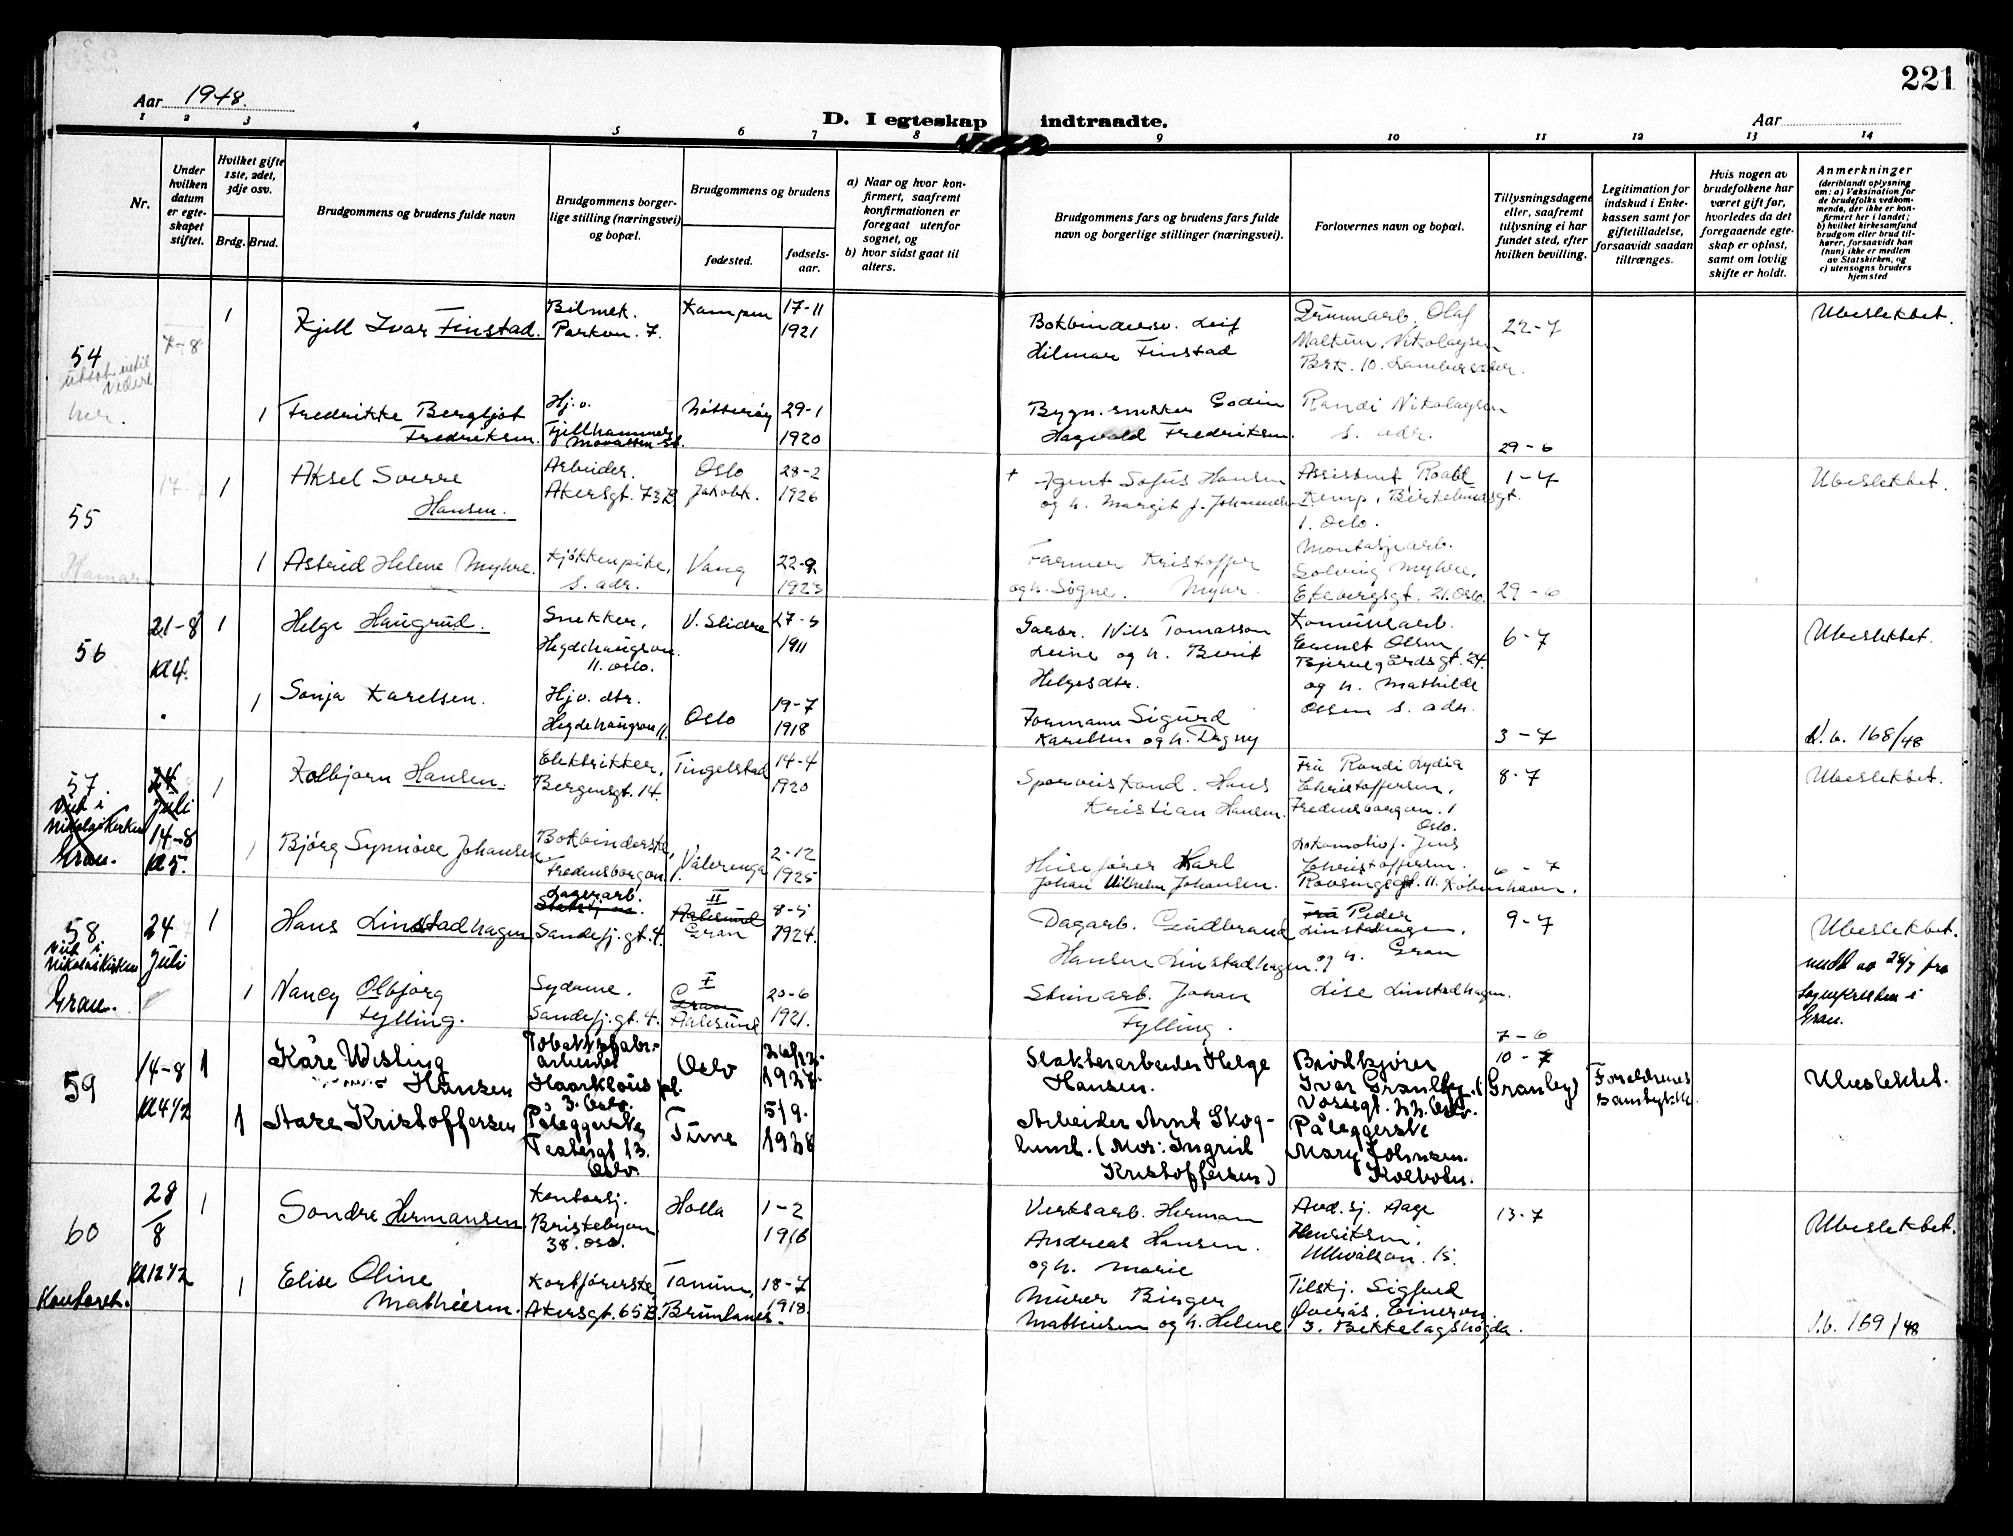 221
Aar 1948.
D. I egteskap indtraadte.
Aar
1 2 3 4 5 6 7 8 9 10 11 12 13 14
Nr.
Under hvilken datum er egteskapet stiftet.
Hvilket gifte 1ste, 2det, 3dje osv.
Brdg. Brud.
Brudgommens og brudens fulde navn
Brudgommens borgerlige stilling (næringsvei) og bopæl.
Brudgommens og brudens
fødested.
fødselsaar.
a) Naar og hvor konfirmert, saafremt konfirmationen er foregaat utenfor sognet, og
b) hvor sidst gaat til alters.
Brudgommens fars og brudens fars fulde navn og borgerlige stillinger (næringsvei).
Forlovernes navn og bopæl.
Tillysningsdagene eller, saafremt tillysning ei har fundet sted, efter hvilken bevilling.
Legitimation for indskud i Enkekassen samt for giftetilladelse, forsaavidt saadan tiltrænges.
Hvis nogen av brudefolkene har været gift før, hvorledes da det foregaaende egteskap er opløst, samt om lovlig skifte er holdt.
Anmerkninger
(deriblandt oplysning om: a) Vaksination for de brudefolks vedkommende, der ikke er konfirmert her i landet; b) hvilket kirkesamfund brudgom eller brud tilhører, forsaavidt han (hun) ikke er medlem av Statskirken, og c) utensogns bruders hjemsted
54
7-8
1
Kjell Ivar Finstad.
Bilmek.
Parkvn. 7.
Kampen
17-11
1921
Leif
Hilmar Finstad
Olaf
Nikolaysen
22-7
Ubeslektet.
her.
1
Fredrikke Bergljot
Fredriksen.
Hj.v.
Fjellhammer
Nøtterøy
29-1
1920
Bygn. snekker Godin
Hagvald Fredriksen.
Randi Nikolaysen
s. adr.
29-6
55
1
Aksel Sverre
Hansen.
Arbeider.
Akersgt. 73B
Oslo
Jakobk.
28-2
1926
+ Agent Sofus Hansen
og h. Margit f. Johannesen
Assistent Roald
Kemp, Birkelundsgt.
1. Oslo.
1-7
Ubeslektet.
Hamar
1
Astrid Helene Myhre.
Kjøkkenpike,
s. adr.
Vang
22-9
1923
Farmer Kristoffer
og h. Signe. Myhr.
Montasjearb.
Solveig Myhre,
Ekebergsgt. 21. Oslo.
29-6
56
21-8
kl 4.
1
Helge Haugrud.
Snekker,
Hegdehaugsvn.
11. Oslo.
V. Slidre
27-5
1911
Garbr. Nils Tomasson
Leine og h. Berit
Helgesdtr.
Kommunearb.
Olsen
Bjerregårdsgt. 24.
og h. Mathilde
Olsen s. adr.
6-7
Ubeslektet.
1
Sonja Karelsen.
Hjv. dtr.
Hegdehaugsvn 11.
Oslo
19-7
1918
Formann Sigurd
Karelsen og h. Dagny
3-7
V.b. 168/48
57
Viet i
Nikolaikirken
Gran.
24
Juli
14-8
kl 5.
1
Kolbjørn Hansen.
Elektriker,
Bergensgt. 14.
Tingelstad
14-4
1920
Sporveiskond. Hans
Kristian Hansen.
Fru Randi Lydia
Christoffersen,
Fredensborgvn. 1
Oslo.
8-7
Ubeslektet.
1
Bjørg Synnøve Johansen
Bokbinderske,
Fredensborgvn 1.
Vålerenga
2-12
1925
Husefører Karl
Johan Vilhelm Johansen.
Lokomotivf. Jens
Christoffersen.
Rovsingsgt. 11. København.
6-7
58
Viet i
Nikolaikirken
Gran.
24
Juli
1
Hans Linstadhagen
Lagerarb.
Sandefj. gt. 4.
II
Aalesund
Gran
8-5
1924.
Dagarb. Gudbrand
Hansen Linstadhagen.
Fru Peder
Linstadhagen,
og h. Gran
9-7
Ubeslektet.
28/7 fra
Sognepresten i
Gran.
1
Nancy Olbjørg
Fylling.
Sydame.
Sandefj. gt. 4.
I
Gran
Aalesund
20-6
1921.
Steinarb. Johan
Fylling.
Lise Linstadhagen.
7-6
59
14-8
kl 4 1/2
1
Kåre Wisting
Hansen
Tobakksfabr.-
arbeider
Haarklous pl.
3. Oslo.
Oslo
26/12
1927
Slakterarbeider Helge
Hansen.
Brødkjører
Ivar Granlby. (Granby)
Vossegt. 22. Oslo.
10-7
Foreldrenes
samtykke
Ubeslektet.
1
Aase Kristoffersen
Påleggerske
13.
Oslo.
Time
5/9.
1928
Arbeider Arnt Skog-
lund. (Mor: Ingrid
Kristoffersen)
Påleggerske
Mary Johnsen.
Kolbotn.
60
Kontoret.
28
/
8
kl 12 1/2
1
Sondre Hermansen.
Kontorsj.
Bristebyvn.
38. Oslo.
Holla
1-2
1916
Verksarb. Herman
Andreas Hansen.
og h. Marie
Avd. sj. Aage
Henriksen,
Ullevålsvn. 15.
13-7
Ubeslektet.
1
Elise Oline
Mathiesen.
Kortførerske,
Akersgt. 65B.
Tanum,
Brunlanes.
18-7
1918.
Murer Birger
Mathiesen og h. Helene
Tilskj. Sigfred
Overås, Einervn.
3. Bekkelagshøgda.
V.b. 169/48